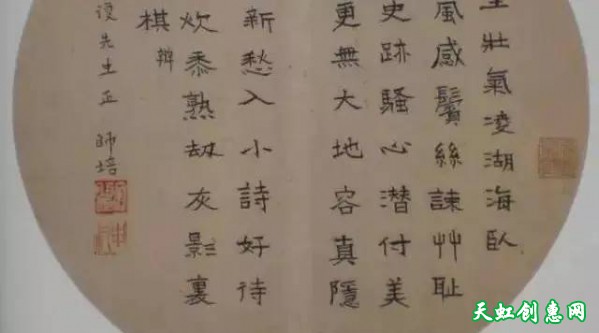 生壯氣凌湖海臥
風感鬢絲諫艸恥
史跡騷心潜付美
更無大地容真隱
新愁入小詩好待
炊黍熟劫灰影裏
棋
先生正 師培
天虹创惠网